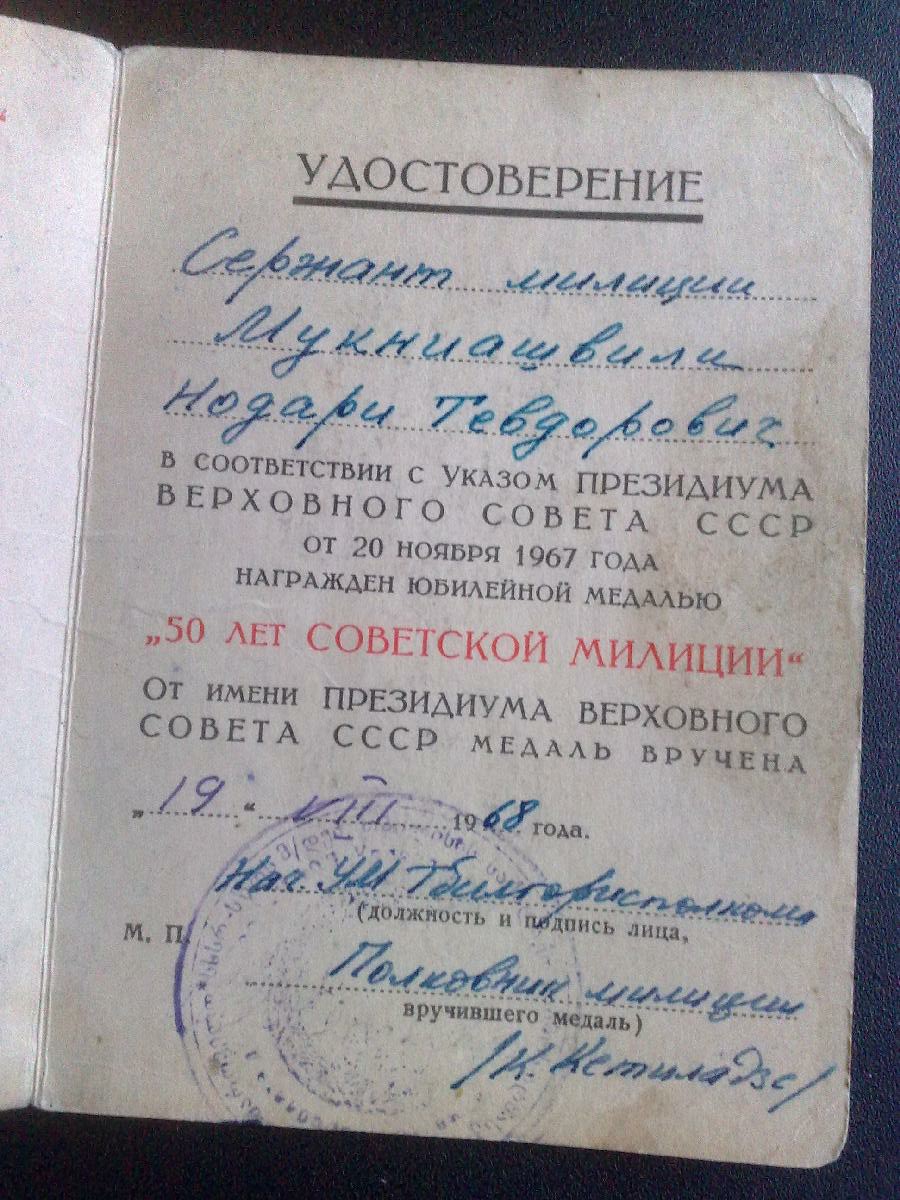 УДОСТОВЕРЕНИЕ
Сержант милиции
Мукниашвили
Нодари Тевдорович
В СООТВЕТСТВИИ С УКАЗОМ ПРЕЗИДИУМА
ВЕРХОВНОГО СОВЕТА СССР
ОТ 20 НОЯБРЯ 1967 ГОДА
НАГРАЖДЕН ЮБИЛЕЙНОЙ МЕДАЛЬЮ
„50 ЛЕТ СОВЕТСКОЙ МИЛИЦИИ“
ОТ ИМЕНИ ПРЕЗИДИУМА ВЕРХОВНОГО
СОВЕТА СССР МЕДАЛЬ ВРУЧЕНА
„19“ VIII 1968 года.
Нач. УМ Тбилгорисполкома
(должность и подпись лица,
М. П.
Полковник милиции
вручившего медаль)
/К. Кетиладзе/